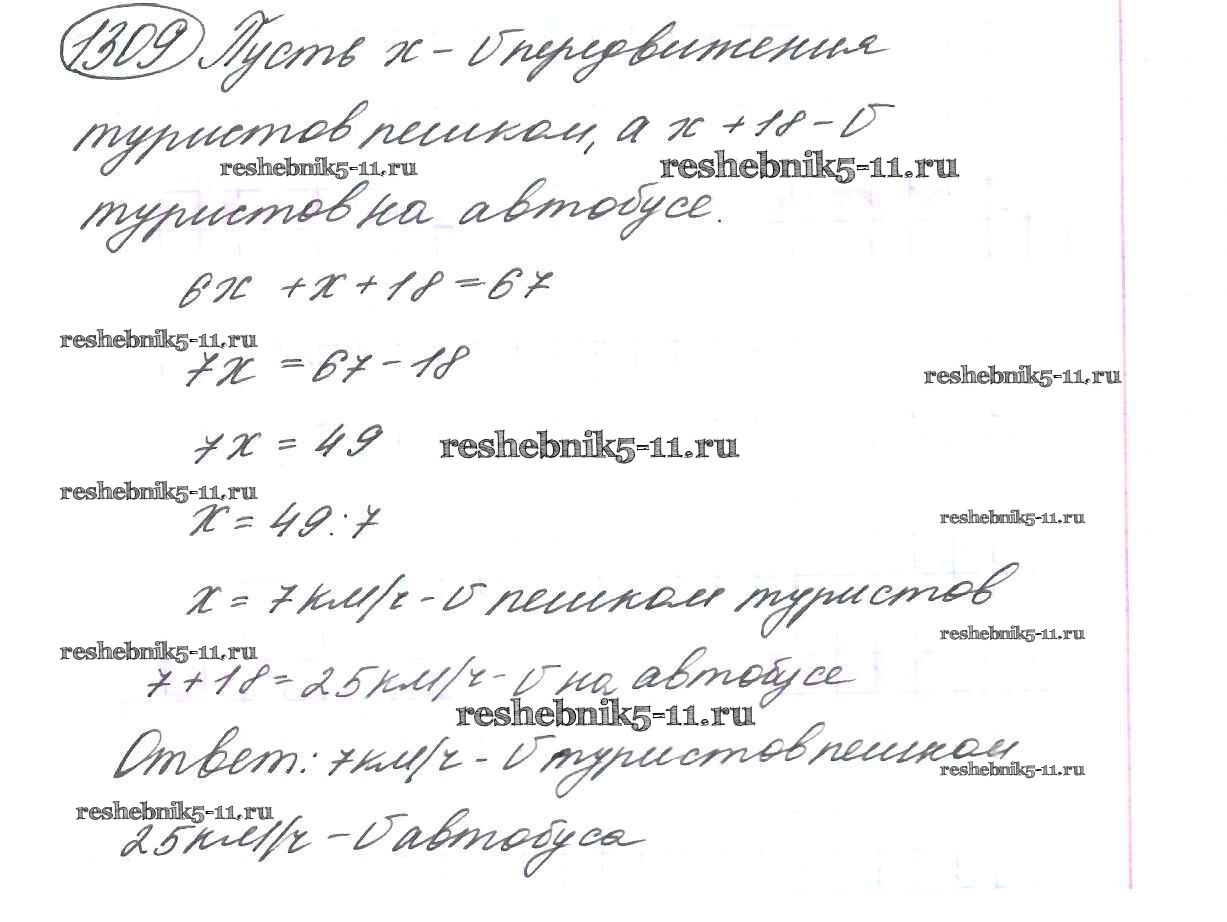 1309 Пусть х - υ передвижения
туристов пешком, а х + 18 - υ
reshebnik5-11.ru reshebnik5-11.ru
туристов на автобусе.
6х + х + 18 = 67
reshebnik5-11.ru
7х = 67 - 18
reshebnik5-11.ru
7х = 49 reshebnik5-11.ru
reshebnik5-11.ru
х = 49 : 7 reshebnik5-11.ru
х = 7 км/ч - υ пешком туристов
reshebnik5-11.ru
reshebnik5-11.ru
7 + 18 = 25 км/ч - υ на автобусе
reshebnik5-11.ru
Ответ: 7 км/ч - υ туристов пешком
reshebnik5-11.ru
reshebnik5-11.ru
25 км/ч - υ автобуса